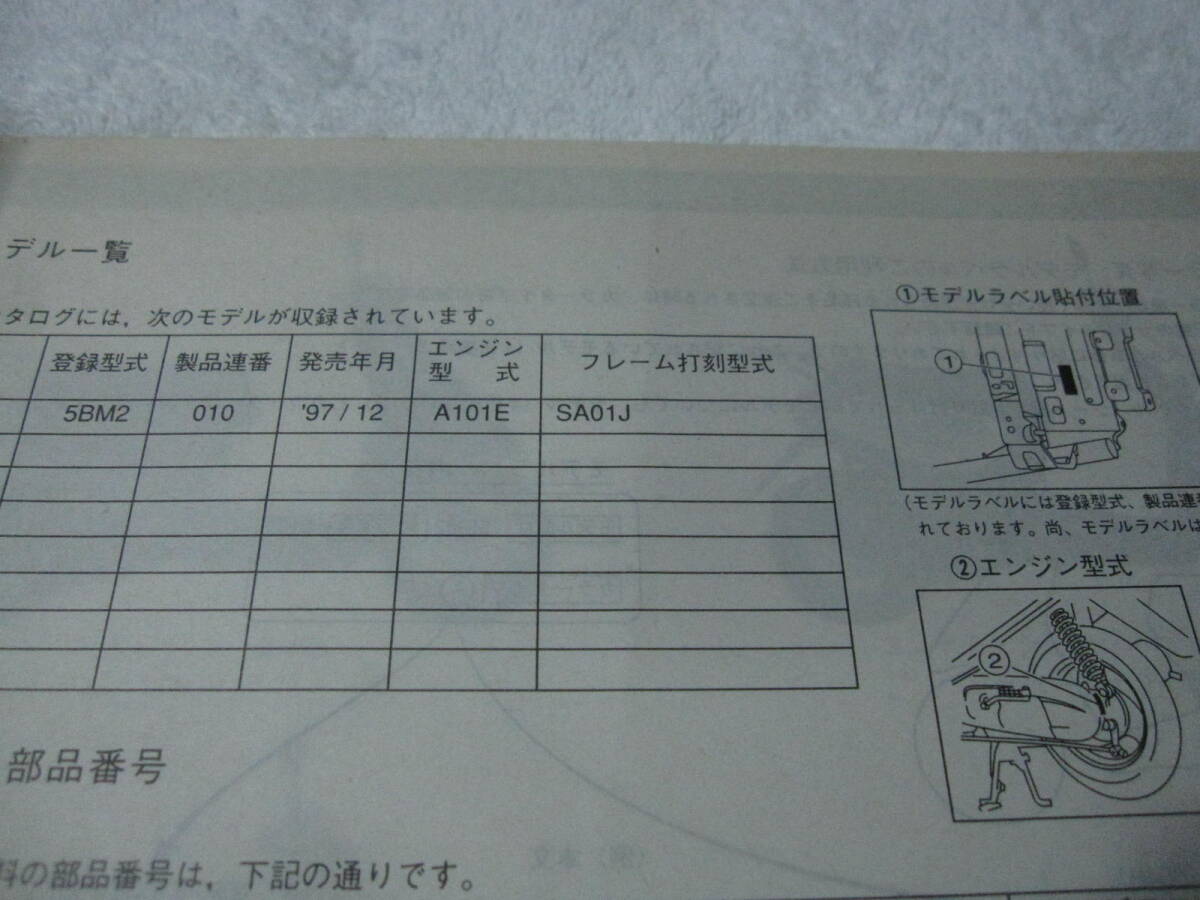 デル一覧
タログには，次のモデルが収録されています。
登録型式 製品連番 発売年月 エンジン型式 フレーム打刻型式
5BM2 010 '97/12 A101E SA01J
①モデルラベル貼付位置
①
(モデルラベルには登録型式、製品連番
れております。尚、モデルラベルは
②エンジン型式
②
部品番号
料の部品番号は，下記の通りです。